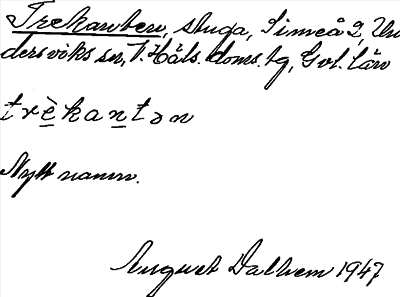 Trekanten, stuga, Simeå 2, Un
dersviks sn, V. Häls. doms. tg, Gvl. län
trèkantən
Nytt namn.
August Dalhem 1947